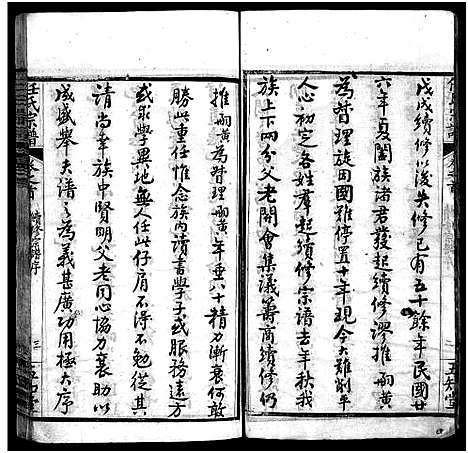 戊戌續修以後失修已有五十餘年民國廿
六年夏閤族諸君發起續修謬推雨黄
為督理旋因國難停置十年現今大難削平
人心初定各姓羣起續修宗譜去年秋我
族上下兩分父老開會集議籌商續修仍
推雨黄為督理雨黄年垂八十精力漸衰何敢
勝此重任惟念族内讀書學子或服務遠方
或求學異地無人任此仔肩不得不勉從其
請尚幸族中賢明父老同心協力襄
成盛舉夫譜之為義甚廣功用極大序
任氏宗譜
卷之首
續修宗譜序
三
二
五知堂